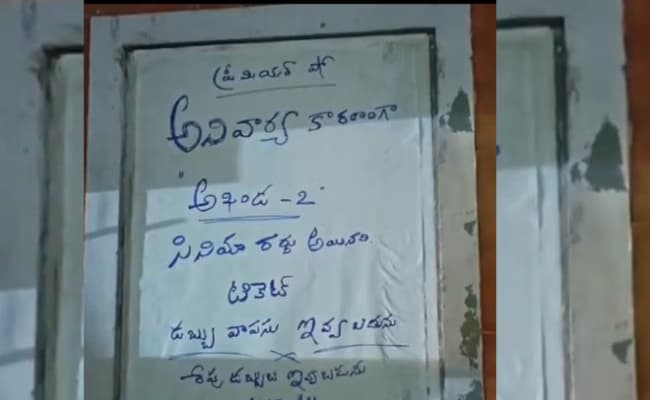 ప్రీమియర్ షో
అనివార్య కారణంగా
"అఖండ - 2"
సినియా రద్దు అయినది.
టికెట్
డబ్బు వాపసు ఇవ్వబడును
డబ్బులు ఇవ్వబడును